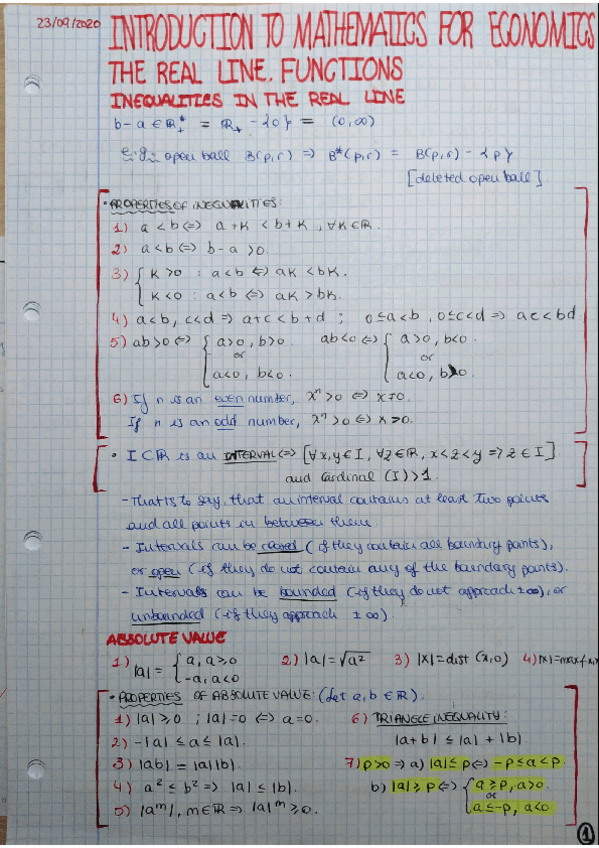 23/09/2020
INTRODUCTION TO MATHEMATICS FOR ECONOMICS
THE REAL LINE. FUNCTIONS
INEQUALITIES IN THE REAL LINE
b-a ∈ ℝ₊* = ℝ₊ - {0} = (0,∞)
open ball B(p,r) ⇒ B*(p,r) = B(p,r) - {p}
[deleted open ball].
• PROPERTIES OF INEQUALITIES:
1) a < b ⇔ a+K < b+K, ∀K∈ℝ.
2) a<b ⇔ b-a >0.
3) { K >0 : a<b ⇔ aK < bK.
K<0 : a<b ⇔ aK > bK.
4) a<b, c<d ⇒ a+c < b+d ; 0≤a<b, 0≤c<d ⇒ ac<bd
5) ab>0 ⇔ { a>0, b>0 or a<0, b<0. ab<0 ⇔ { a>0, b<0. or a<0, b>0.
6) If n is an even number, xⁿ>0 ⇔ x≠0.
If n is an odd number, xⁿ>0 ⇔ x>0.
• I⊂ℝ is an INTERVAL ⇔ [∀x,y∈I, ∀z∈ℝ, x<z<y ⇒ z∈I]
and Cardinal (I)>1.
- That is to say, that an interval contains at least two points
and all points in between them.
- Intervals can be closed (if they contain all boundary points),
or open (if they do not contain any of the boundary points).
- Intervals can be bounded (if they do not approach ±∞), or
unbounded (if they approach ±∞).
ABSOLUTE VALUE
1) |a| = { a, a≥0 -a, a<0 2) |a|=√a² 3) |x|=dist (x,0) 4) |x|=max{
• PROPERTIES OF ABSOLUTE VALUE: (let a,b∈ℝ).
1) |a|≥0 ; |a|=0 ⇔ a=0. 6) TRIANGLE INEQUALITY:
2) -|a| ≤ a ≤ |a|. |a+b| ≤ |a| + |b|
3) |ab| = |a||b|. 7) p>0 ⇒ a) |a|≤p ⇔ -p≤a≤p.
4) a² ≤ b² ⇒ |a| ≤ |b|. b) |a|≥p ⇔ { a≥p, a>0. or a≤-p, a<0
5) |aᵐ|, m∈ℝ ⇒ |a|ᵐ ≥0.
1